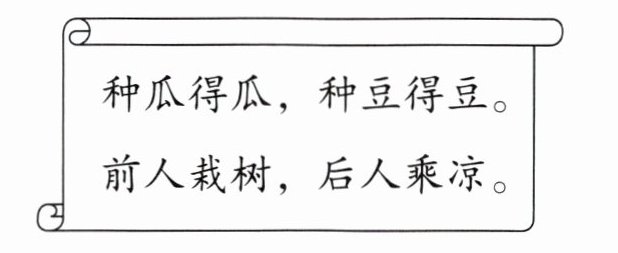 种瓜得瓜，种豆得豆。
前人栽树，后人乘凉。